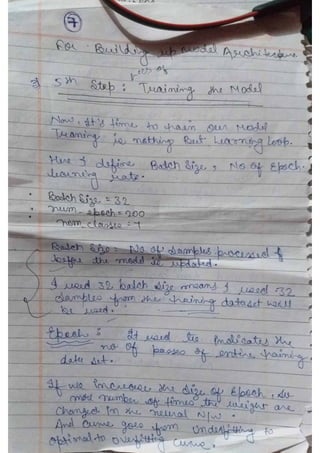 7
For Building up model Architecture
5th Step : Training the Model
Now, It's time to train our Model
Traning is nothing But Learning loop.
Here I define Batch Size, No of Epoch.
learning rate.
Batch Size = 32
num_epoch = 200
num_classes = 7
Batch Size = No of samples processed
before the model is updated.
I used 32 batch size means I used 32
samples from the training dataset will
be used.
Epoch : It used to indicates the
no of passes of entire training
data set.
If we increase the size of Epoch, so
most number of times the weight are
changed in the neural N/w.
And curve goes from underfitting to
optimal to overfitting curve.